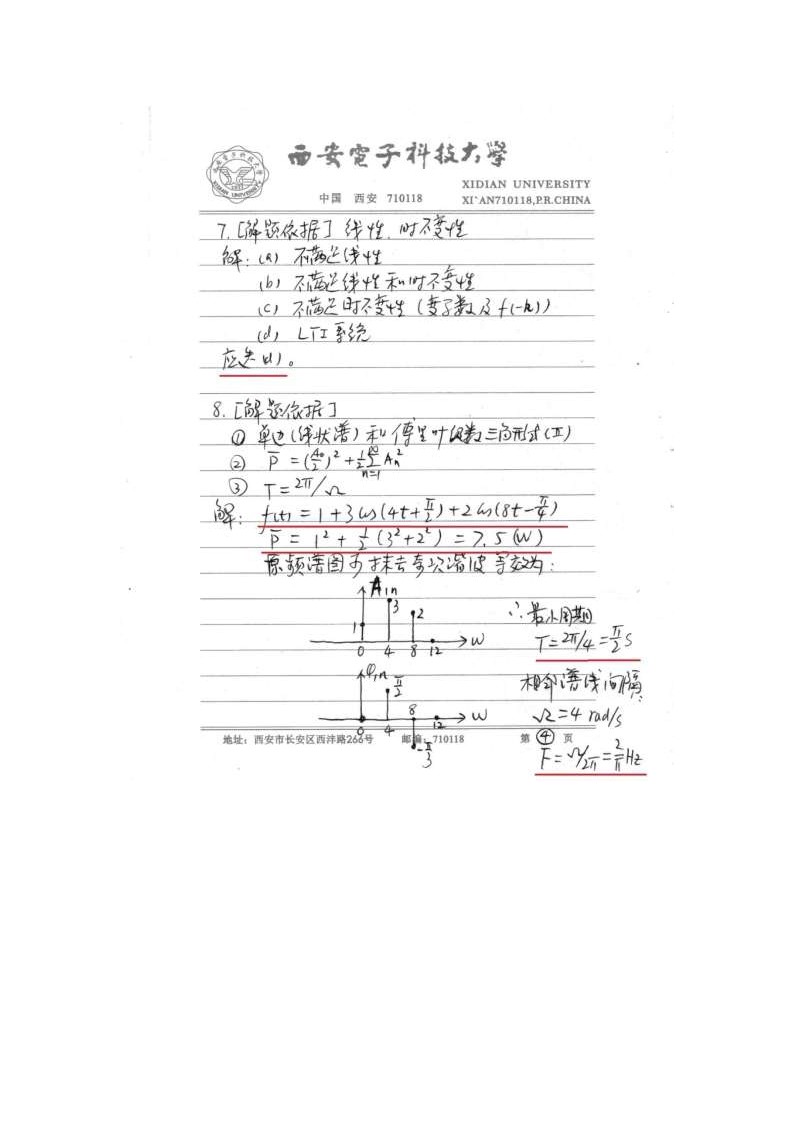 西安電子科技大學
XIDIAN UNIVERSITY
中国 西安 710118 XI'AN710118,P.R.CHINA
7. [解题依据] 线性、时不变性
解: (a) 不满足线性
(b) 不满足线性和时不变性
(c) 不满足时不变性 (变系数及 f(-k))
(d) LTI 系统
应选 (d)。
8. [解题依据]
① 单边(线状谱)和傅里叶级数三角形式(II)
② P̄ = (A₀/2)² + 1/2 ∞Σn=1 Aₙ²
③ T = 2π/Ω
解: f(t) = 1 + 3cos(4t + π/2) + 2cos(8t - π/4)
P̄ = 1² + 1/2 (3² + 2²) = 7.5 (W)
原频谱图可抹去奇次谐波等效为:
Aₙ
3
2
1
0 4 8 12 → w
∴ 最小周期
T = 2π/4 = π/2 S
φₙ
π/2
8
0 4 12 → w
-π/3
相邻谱线间隔
Ω = 4 rad/s
F = Ω/2π = 2/π Hz
地址: 西安市长安区西沣路266号 邮编: 710118 第 ④ 页